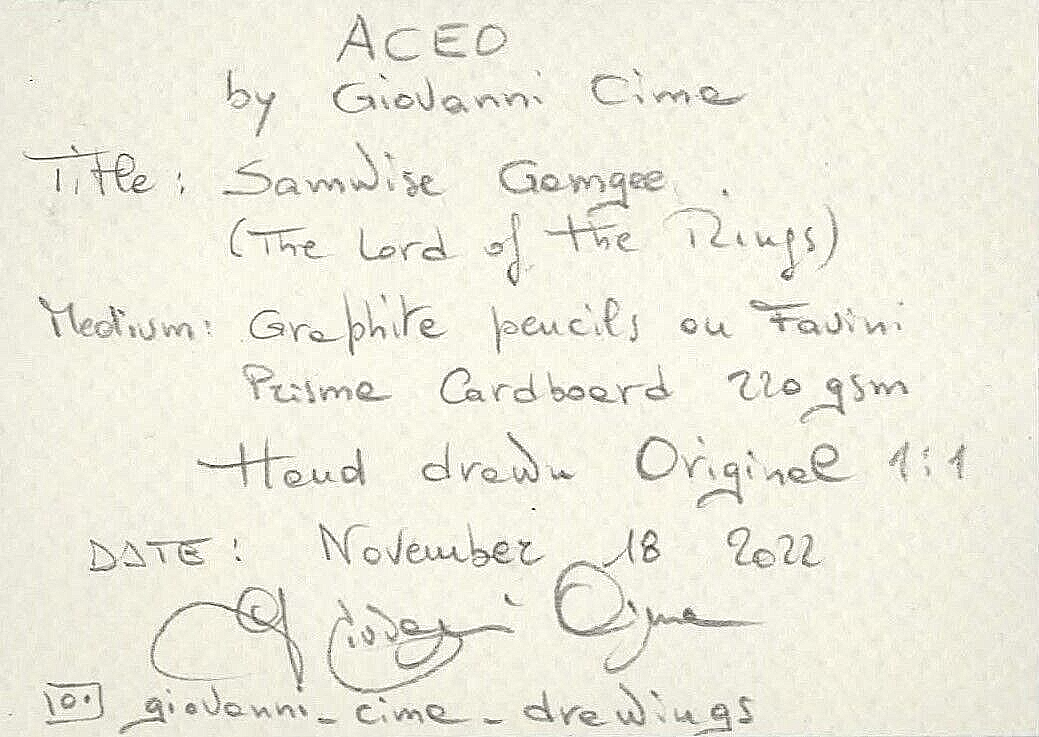 ACEO
by Giovanni Cima
Title: Samwise Gamgee.
(The Lord of the Rings)
Medium: Graphite pencils on Favini
Prisma Cardboard 220 gsm
Hand drawn Original 1:1
DATE: November 18 2022
Giovanni Cima
giovanni_cima_drawings